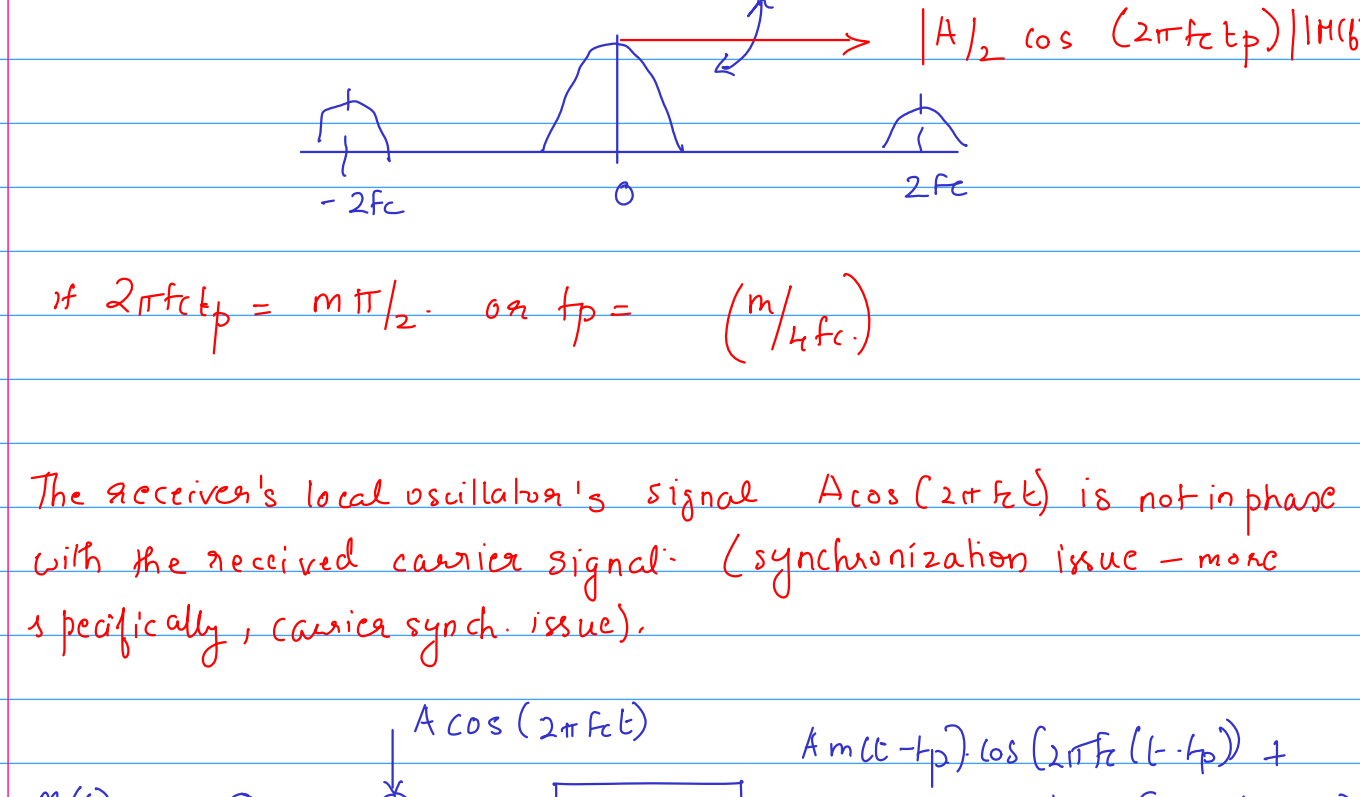 |A/2 cos (2πfctp)||M(f
- 2fc 0 2fc
if 2πfctp = mπ/2. or tp = (m/4fc.)
The receiver's local oscillator's signal Acos(2πfct) is not in phase
with the received carrier signal. (synchronization issue - more
specifically, carrier synch. issue).
A cos(2πfct)
Am(t-tp).cos(2πfc(t-tp)) +